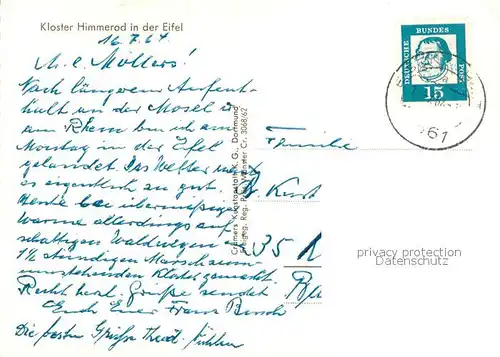 Kloster Himmerod in der Eifel
16.7.64
M. l. Möllers!
Nach längerem Aufent-
halt an der Mosel u.
am Rhein bin ich am
Montag in der Eifel
gelandet. Das Wetter
es eigentlich zu gut.
Heute bei übermäßiger
Wärme allerdings auf
schattigen Waldwegen
1½ stündigen Marsch zum
umstehenden Kloster gemacht.
Recht herzl. Grüße sendet
Euch Euer Franz
Die besten Grüße
Cramers Kunstanstalt K. G., Dortmund
Freigeg. Reg. Präs. Münster Cr. 3068/62
DEUTSCHE BUNDES POST
15
61
Familie
Kurt
privacy protection
Datenschutz